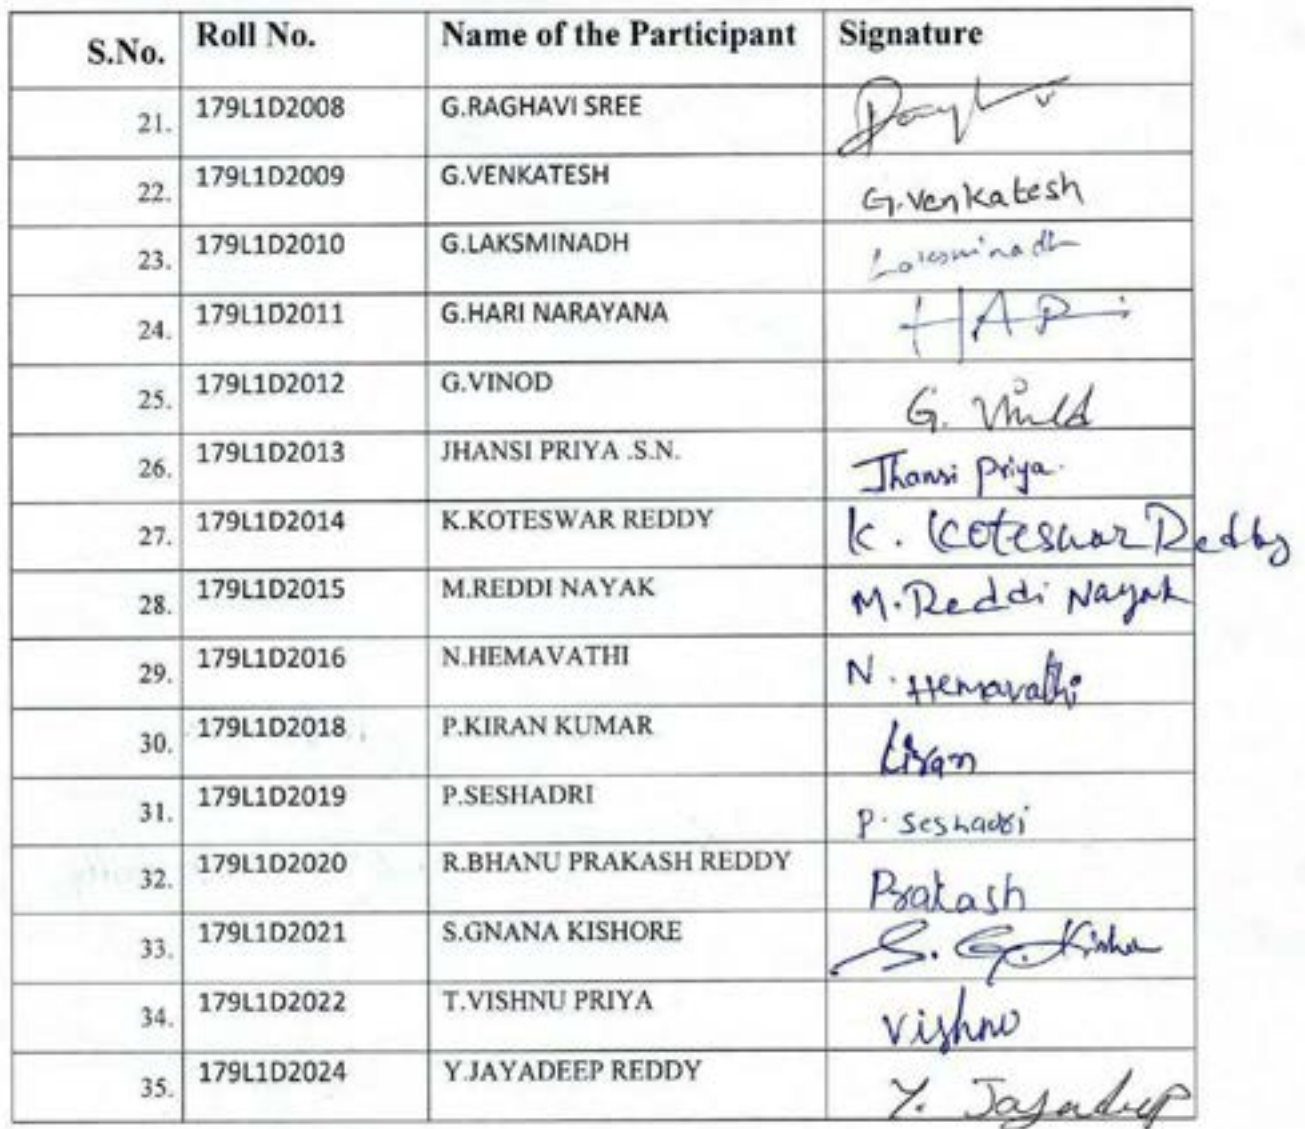 S.No. Roll No. Name of the Participant Signature
21. 179L1D2008 G.RAGHAVI SREE
22. 179L1D2009 G.VENKATESH G.Venkatesh
23. 179L1D2010 G.LAKSMINADH Laksminadh
24. 179L1D2011 G.HARI NARAYANA HARi
25. 179L1D2012 G.VINOD G.
26. 179L1D2013 JHANSI PRIYA .S.N. Jhansi Priya.
27. 179L1D2014 K.KOTESWAR REDDY K. Koteswar Reddy
28. 179L1D2015 M.REDDI NAYAK M.Reddi Nayak
29. 179L1D2016 N.HEMAVATHI N. Hemavathi
30. 179L1D2018 P.KIRAN KUMAR Kiran
31. 179L1D2019 P.SESHADRI P. Seshadri
32. 179L1D2020 R.BHANU PRAKASH REDDY Prakash
33. 179L1D2021 S.GNANA KISHORE S. G. Kishor
34. 179L1D2022 T.VISHNU PRIYA Vishnu
35. 179L1D2024 Y.JAYADEEP REDDY Y. Jayadeep